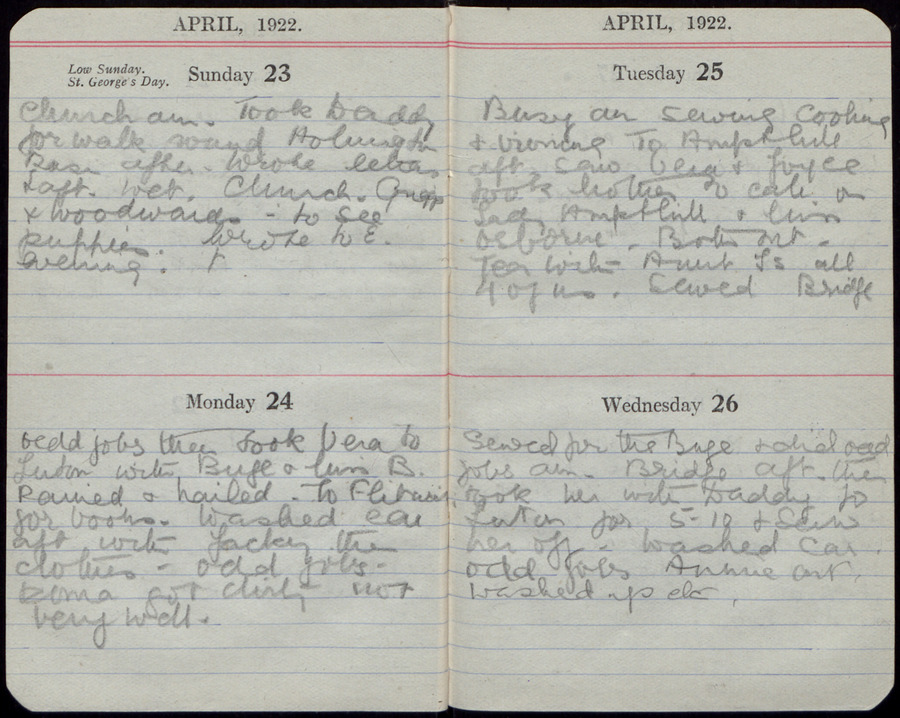 APRIL, 1922.
Low Sunday.
St. George's Day.
Sunday 23
Church am. Took Daddy
for walk round
after. Wrote letters
& aft. wet. Church.
& Woodwards - to see
puppies. Wrote to E.
evening.
Monday 24
oedd jobs then took Vera to
Luton with Buge & Miss B.
Rained & hailed - To Flitwick
for books. Washed car
aft with Jackey then
clothes - odd jobs -
got dirty not
very well.
APRIL, 1922.
Tuesday 25
Busy am sewing Cooking
& ironing To Ampthill
aft. saw Vera & Joyce
took Mother to call on
Lady Ampthill & Miss
Osborne. Both out -
Tea with Aunt Is all
4 of us. Sewed Bridge
Wednesday 26
Sewed for the Buge & did oed
jobs am. Bridge aft. then
took her with Daddy to
Luton for 5-19 & Seen
her off - washed car.
odd jobs Annie out,
washed up etc,